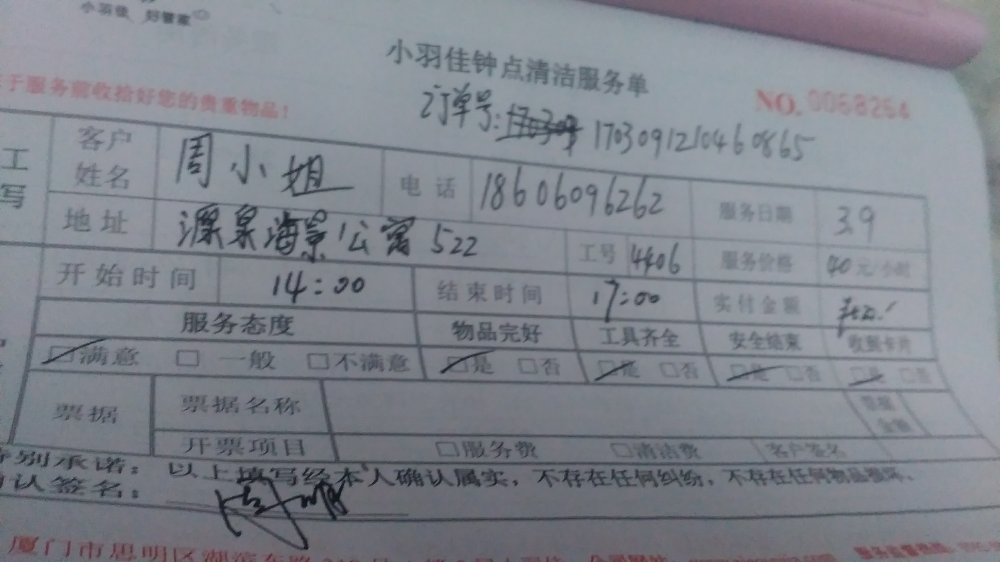 小羽佳 好管家
小羽佳钟点清洁服务单
于服务前收拾好您的贵重物品！ NO. 0068264
订单号: 170309121046 0865
工 写 客户姓名 周小姐 电话 18606096262 服务日期 3.9
地址 源泉海景公寓522 工号 4406 服务价格 40元/小时
开始时间 14:00 结束时间 17:00 实付金额
服务态度 物品完好 工具齐全 安全结束 收到卡片
□满意 □一般 □不满意 □是 □否 □是 □否 □是 □否 □是 □否
票据 票据名称 票据金额
开票项目 □服务费 □清洁费 客户签名
特别承诺：以上填写经本人确认属实，不存在任何纠纷，不存在任何物品损坏。
确认签名：
厦门市思明区湖滨东路